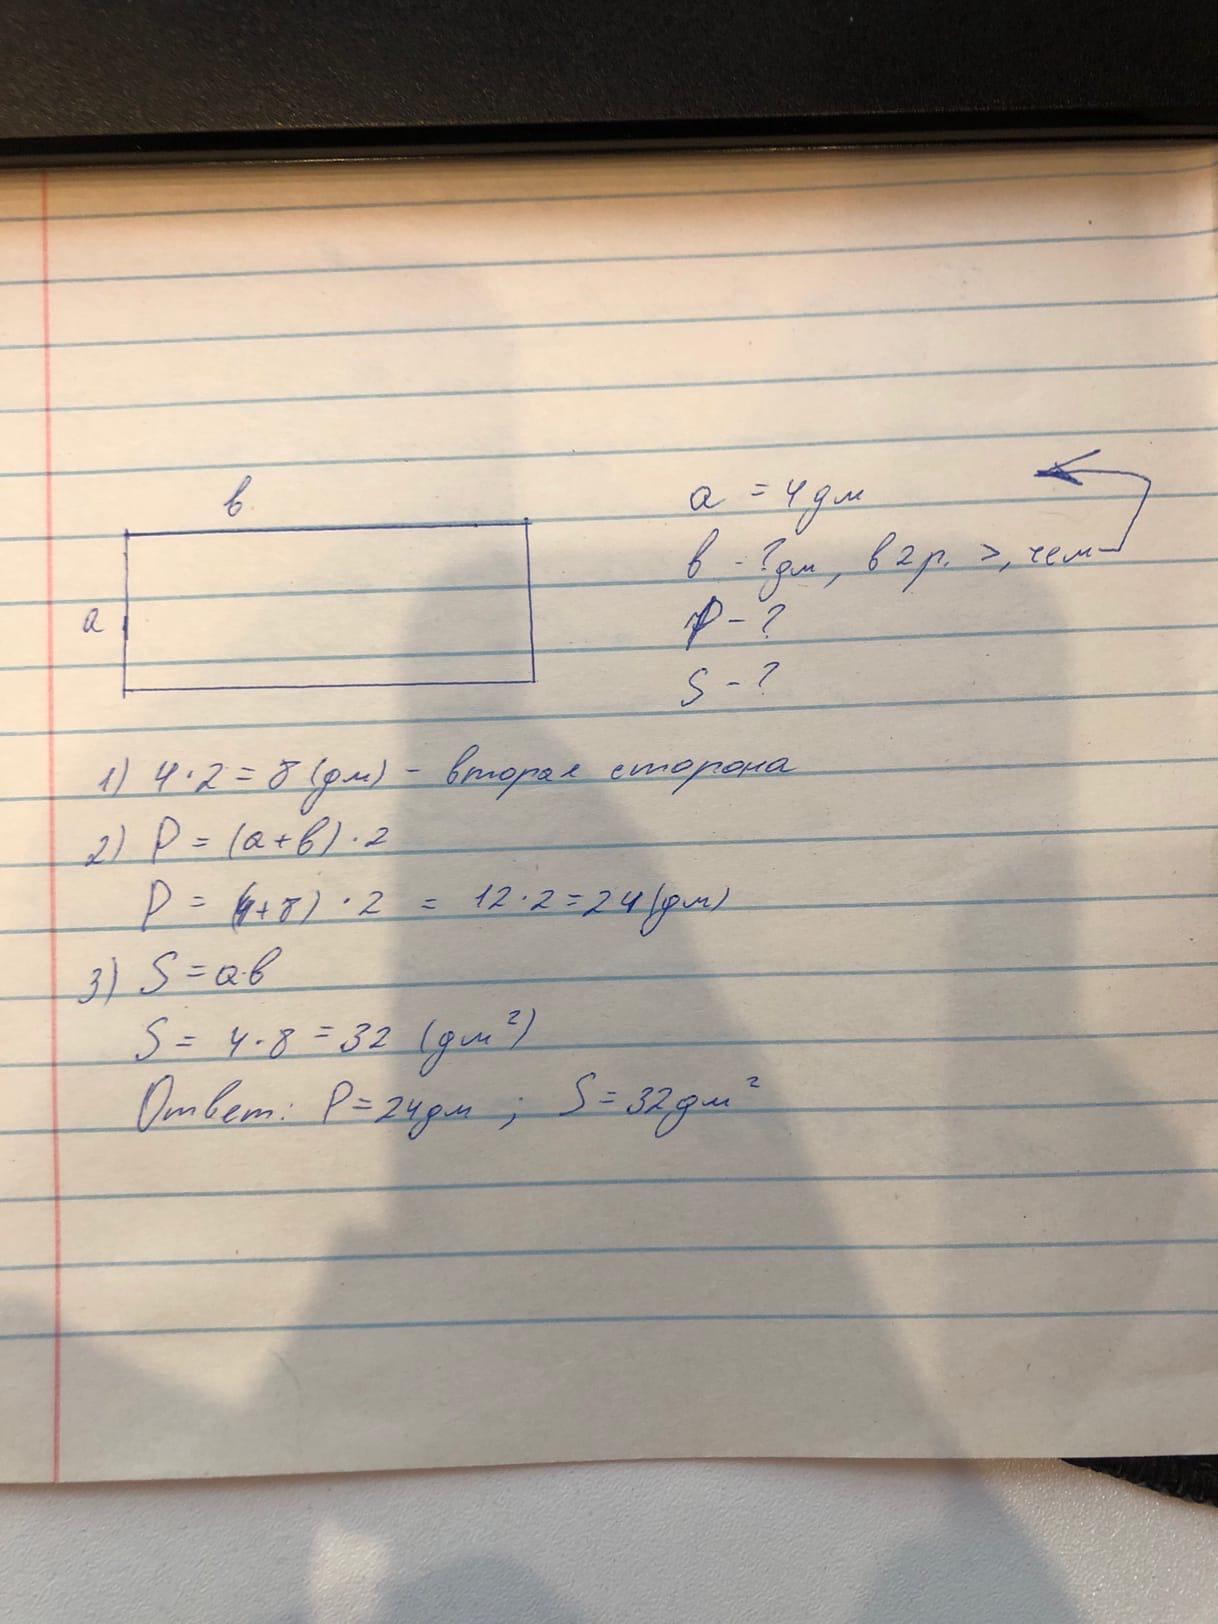 в
а
а = 4дм
в - ?дм, в 2 р. >, чем
P - ?
S - ?
1) 4·2 = 8 (дм) - вторая сторона
2) P = (а+в)·2
P = (4+8)·2 = 12·2 = 24 (дм)
3) S = а·в
S = 4·8 = 32 (дм²)
Ответ: P = 24дм ; S = 32дм²